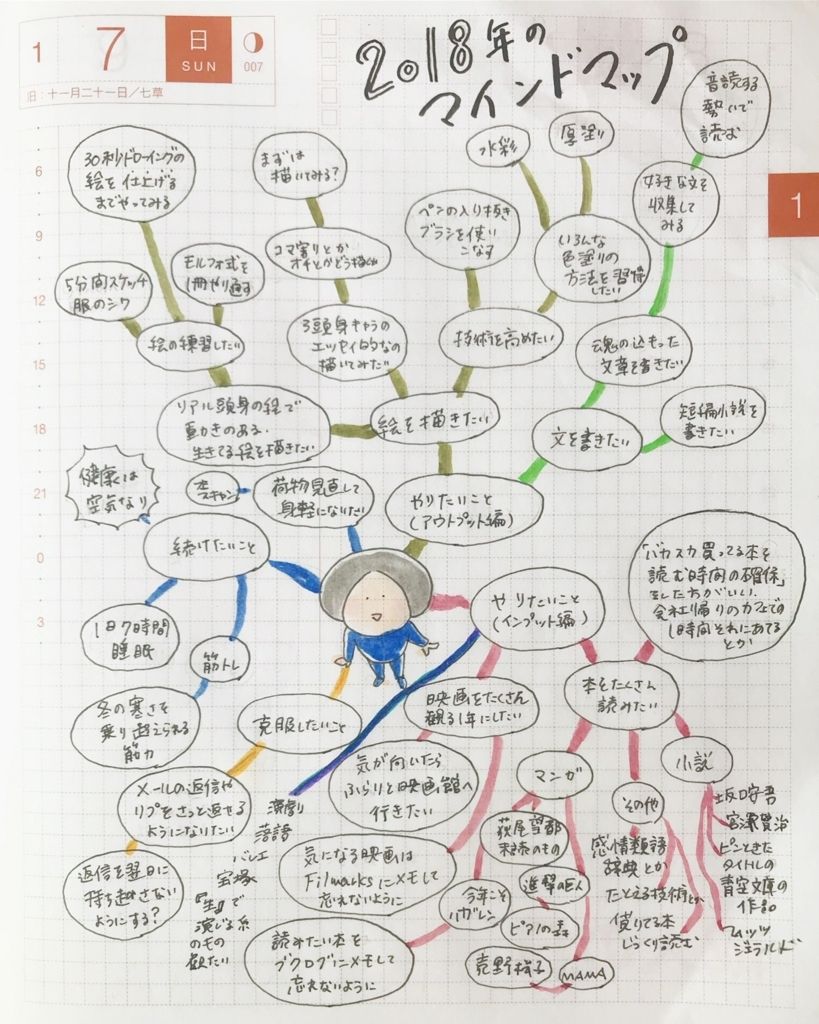 1
7
日
SUN
007
旧：十一月二十一日／七草
2018年の
マインドマップ
音読する
勢いで
読む
30秒ドローイングの
絵を仕上げる
までやってみる
まずは
描いてみる?
水彩
厚塗り
6
好きな文を
収集して
みる
1
ペンの入り抜き
ブラシを使い
こなす
9
コマ割りとか
オチとかどう描くか
いろんな
色塗りの
方法を習得
したい
モルフォ式を
1冊やり通す
5分間スケッチ
服のシワ
12
絵の練習したい
3頭身キャラの
エッセイ的なの
描いてみたい
技術を高めたい
魂の込もった
文章を書きたい
15
リアル頭身の絵で
動きのある、
生きてる絵を描きたい
絵を描きたい
文を書きたい
短編小説を
書きたい
18
健康は
空気なり
本スキャン
荷物見直して
身軽になりたい
やりたいこと
(アウトプット編)
21
続けたいこと
0
やりたいこと
(インプット編)
「バカスカ買ってる本を
読む時間の確保」
をした方がいい。
会社帰りのカフェでの
1時間それにあてる
とか
3
1日7時間
睡眠
筋トレ
冬の寒さを
乗り越えられる
筋力
克服したいこと
映画をたくさん
観る1年にしたい
本をたくさん
読みたい
メールの返信や
リプをさっと返せる
ようになりたい
気が向いたら
ふらりと映画館へ
行きたい
マンガ
その他
小説
返信を翌日に
持ち越さない
ようにする?
演劇
落語
バレエ
宝塚
『生』で
演じる系
のもの
観たい
気になる映画は
Filmarksにメモして
忘れないように
読みたい本を
ブクログにメモして
忘れないように
萩尾望都
未読のもの
進撃の巨人
今年こそ
ハガレン
ピアノの森
MAMA
感情類語
辞典とか
たとえる技術とか
借りてる本
じっくり読む
坂口安吾
宮澤賢治
ピンときた
タイトルの
青空文庫の
作品
フィッツ
ジェラルド